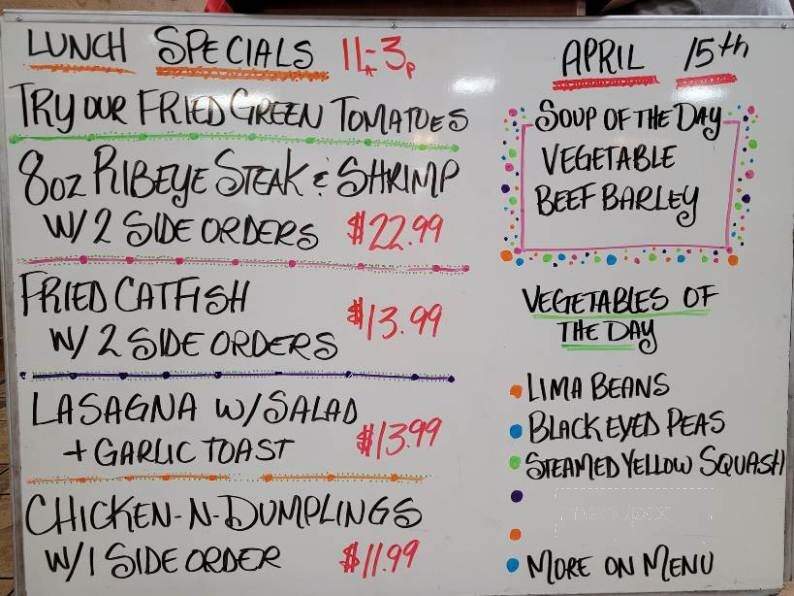 LUNCH SPECIALS 11A-3P
TRY OUR FRIED GREEN TOMATOES
8oz RIBEYE STEAK & SHRIMP
W/ 2 SIDE ORDERS $22.99
FRIED CATFISH
W/ 2 SIDE ORDERS $13.99
LASAGNA W/ SALAD
+ GARLIC TOAST $13.99
CHICKEN-N-DUMPLINGS
W/ 1 SIDE ORDER $11.99
APRIL 15th
SOUP OF THE DAY
VEGETABLE
BEEF BARLEY
VEGETABLES OF
THE DAY
• LIMA BEANS
• BLACK EYED PEAS
• STEAMED YELLOW SQUASH
•
•
• MORE ON MENU